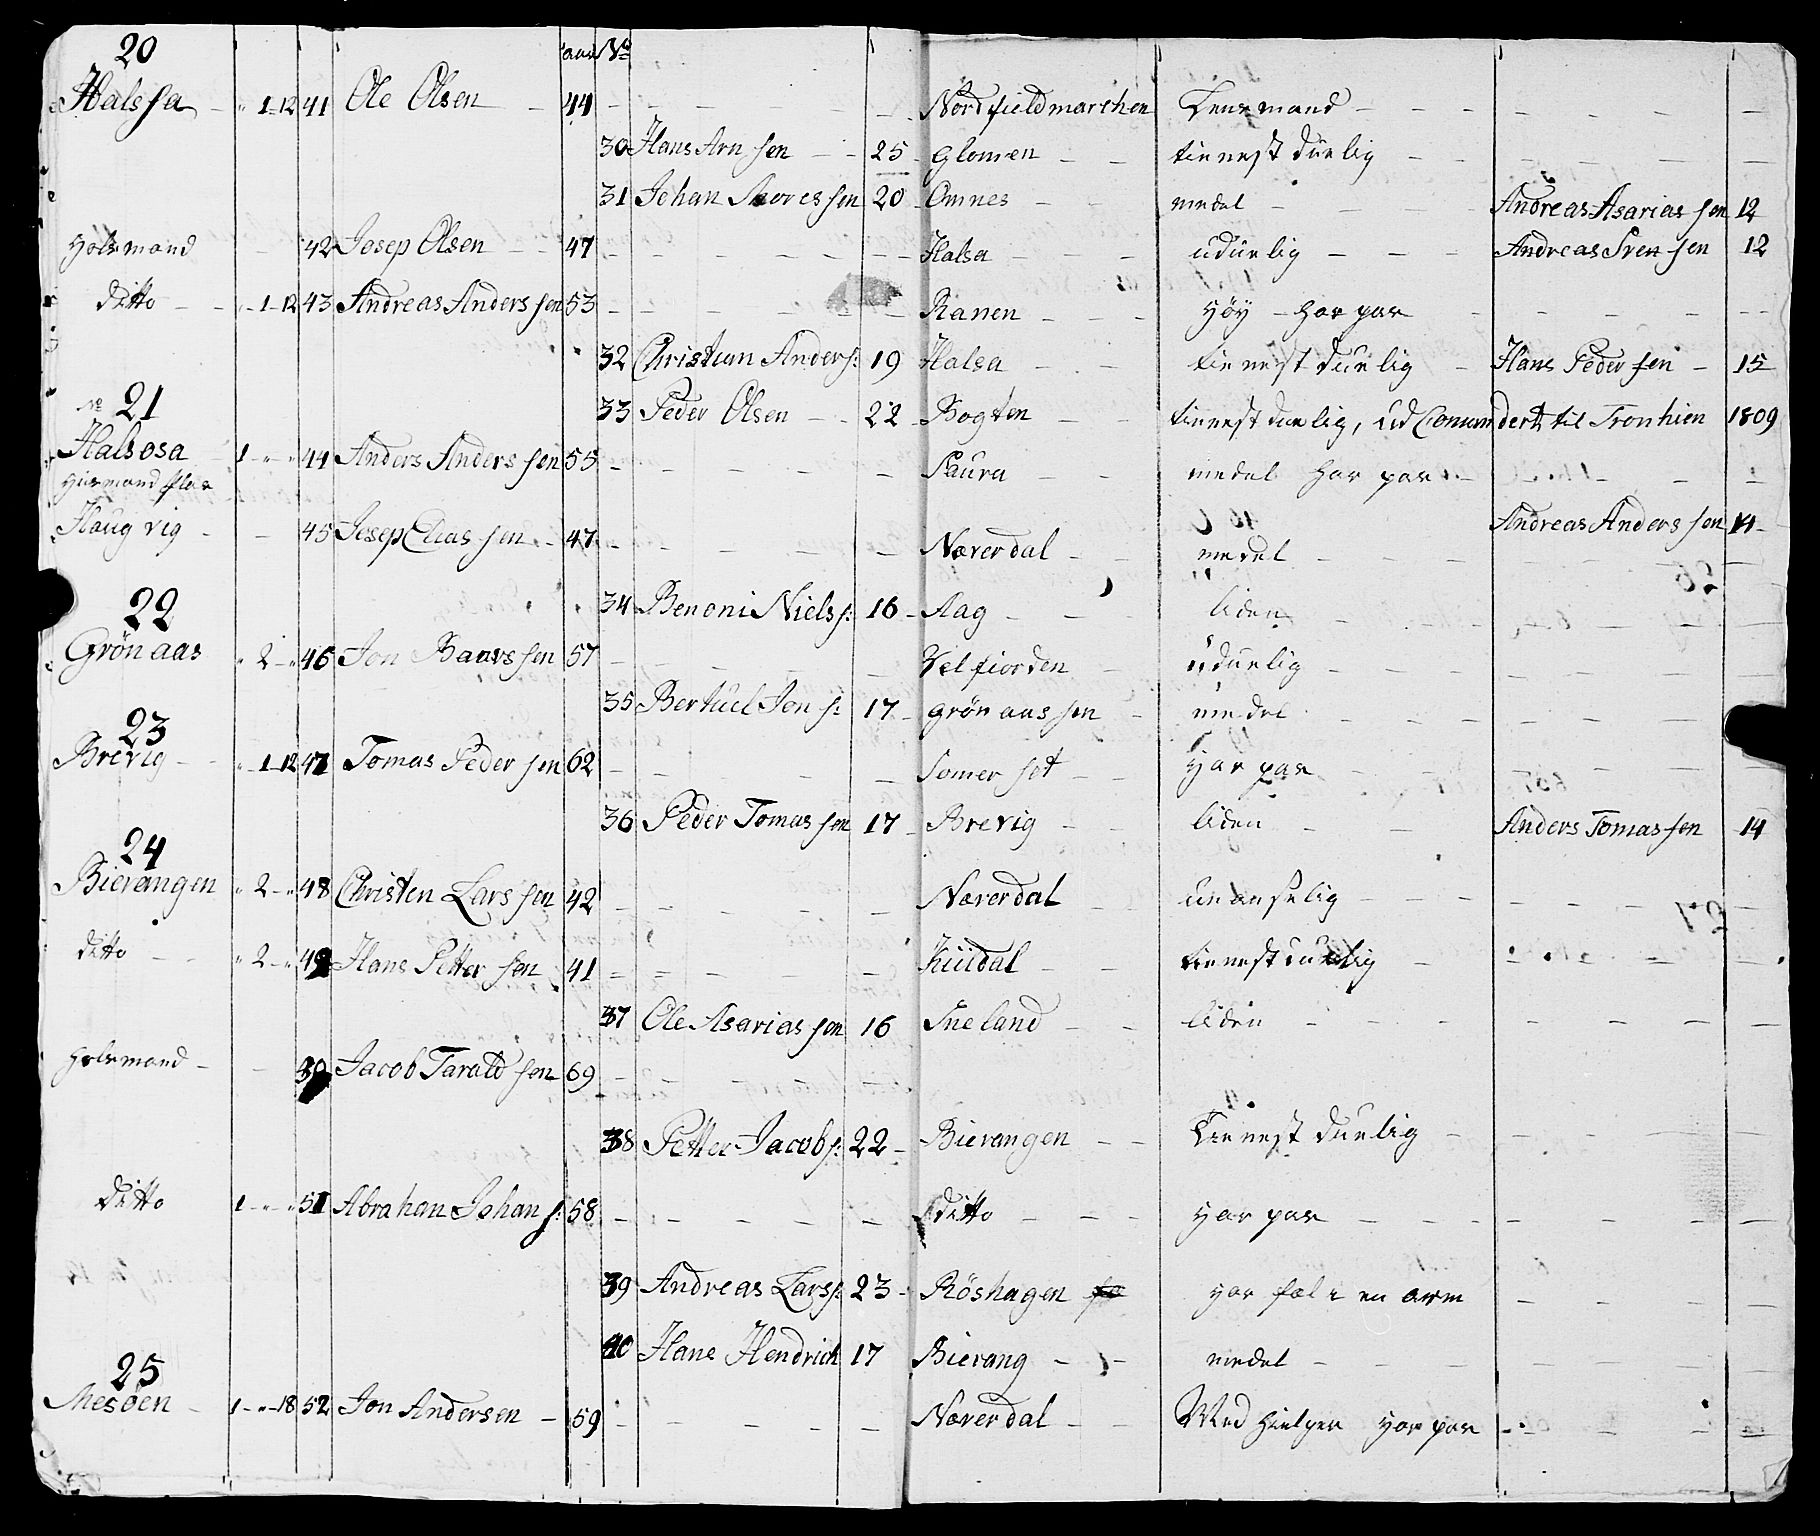 20 aar No
Halssa - " 1 - 12 41 Ole Olsen - 44 - - - - Nordfieldmarchen Lensmand - - - - -
30 Hans Arnsen - - 25 - Glomen - - tienestduelig - - - - -
31 Johan 20 - Omnes - - medel - - - Andreas Asariassen 12
Holsmand - 42 Josep Olsen - - 47 - - - - Halsa - - - uduelig - - - Andreas Svensen 12
ditto - - 1 - 12 43 Andreas Anderssen 53 - - - - Ranen - - - Høy - har par - - - -
32 Christian Anders: 19 Halsa - - tienestduelig - Hans Pedersen - 15
No 21
33 Peder Olsen - - 22 - Bogten - - tienestduelig, ud Comanderet til Tronhien 1809
Halsosa 1 - " - " 44 Anders Anderssen 55 - - - - Saura - - medel har par - - - -
Husmand plas
Haugvig - - 45 Josep Eliassen - 47 - - - - Nærerdal - - medel - - Andreas Anderssen 14 -
22
34 Benoni Niels: 16 - Aag - - - liden - - - -
Grønaas " 2 - " 46 Jon Baarssen 57 - - - - Velfiorden - uduelig - - - -
35 Bertuel Jens: 17 - Grønaassen - medel - - - -
23
Brevig - - " 1 - 12 47 Tomas Pedersen 62 - - - - Somerset - - Har par - - - -
36 Peder Tomassen 17 - Brevig - - liden - - Anders Tomassen 14
24
Bierangen " 2 - " 48 Christen Larssen 42 - - - - Nærerdal - - uanselig - - - -
ditto - - " 2 - " 49 Hans Pettersen 41 - = - - - - tienestduelig - - - -
37 Ole Asariassen 16 Sneland - - liden - - - -
Holsmand - - 50 Jacob Taraldsen 69 - - - - -
38 Petter Jacobs: 22 - Bierangen - - Tienestduelig - - - -
ditto 1 - " - " 51 Abrahan Johans: 58 - - - - Ditto - - - Har par - - - -
39 Andreas Lars: 23 - Röshagen har fæl i en arm - - - -
40 Hans Hendrich 17 Bierang - - medel - - -
25
Mesøen - 1 - " - 18 52 Jon Andersen - 59 - - - - Nærerdal - - Med Hielpen Har par - - - -